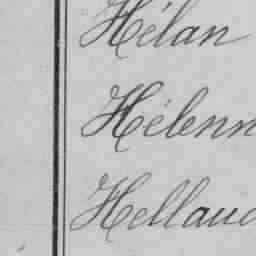 Hélan
Hélenn
Hellaud